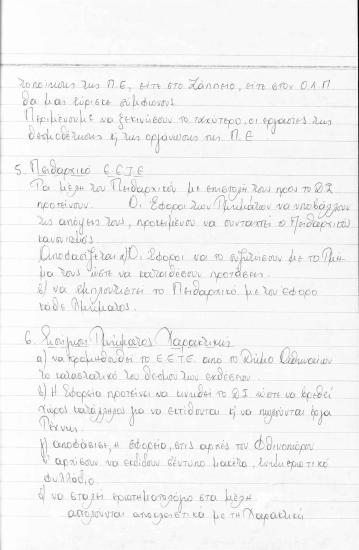 τοποιησης της Π.Ε, είτε στο Ζάππειο, είτε στον Ο.Λ.Π
θα μας εύρισκε σύμφωνους.
Περιμένουμε να ξεκινήσουν το ταχύτερο, οι εργασίες της
θεσμοθέτησης κ της οργάνωσης της Π.Ε
5. Πειθαρχικό Ε.Ε.Τ.Ε
Τα μέλη του Πειθαρχικού με επιστολή τους προς το Δ.Σ
προτείνουν. Οι Έφοροι των Τμημάτων να υποβάλλουν
τις απόψεις τους, προκειμένου να συνταχτεί ο Πειθαρχικός
κανονισμός.
Αποφασίζεται α) Οι Έφοροι να το συζητήσουν με το Τμή-
μα τους ώστε να καταθέσουν προτάσεις.
β) να εμπλουτίστει το Πειθαρχικό με τον Έφορο
κάθε Τμήματος.
6. Τμήματος Χαρακτικής
α) να προμηθευθεί το Ε.Ε.Τ.Ε από το Δήμο Αθηναίων
το καταστατικό του θεσμού των εκθέσεων.
β) Η Εφορεία προτείνει να κινηθεί το Δ.Σ ώστε να βρεθεί
χώρος κατάλληλος για να εκτίθονται κ να πωλούνται έργα
Τέχνης.
γ) αποφάσισε, η εφορεία, στις αρχές του Φθινοπώρου
ν' αρχίσουν να εκδίδουν έντυπο μικρό, ενημερωτικό
φυλλάδιο.
δ) να σταλεί ερωτηματολόγιο στα μέλη
ασχολούνται αποκλειστικά με τη Χαρακτική